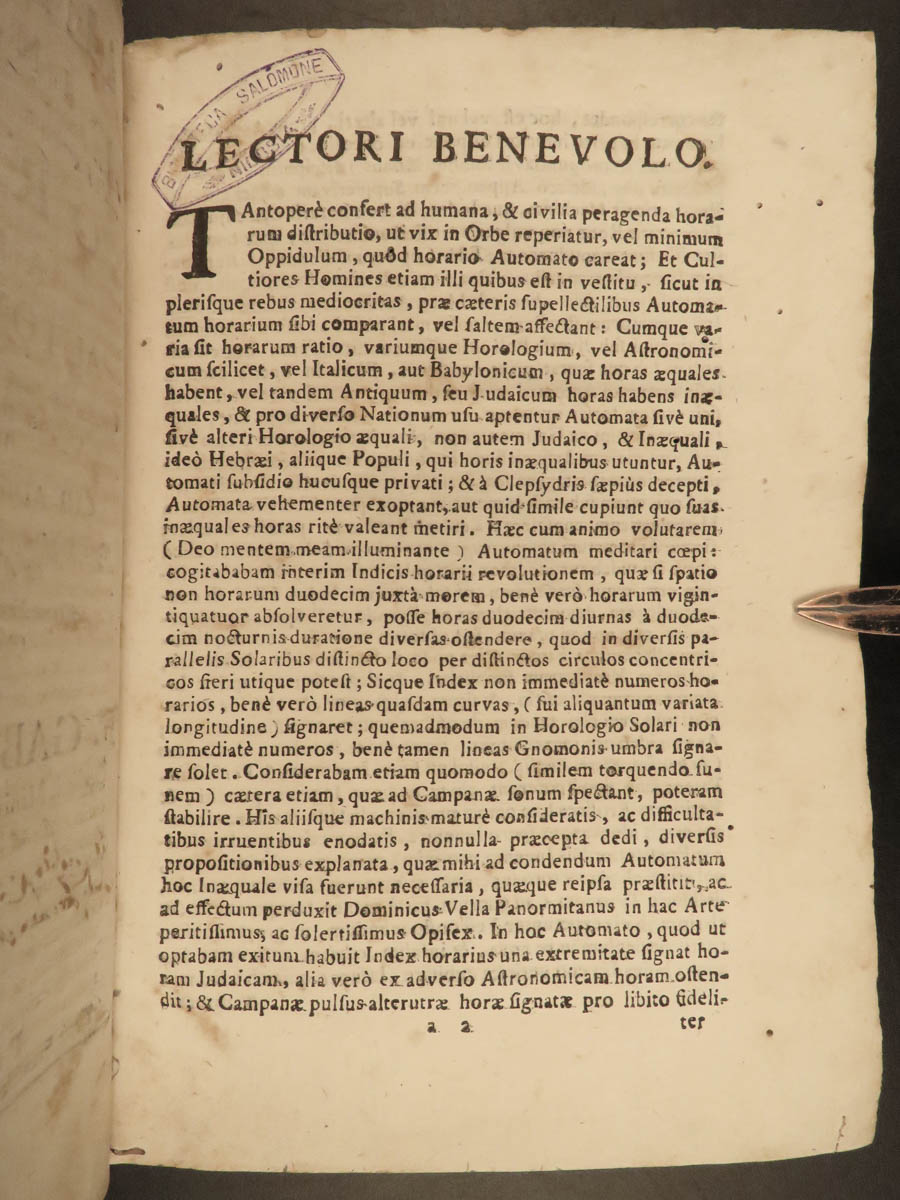 BIBLIOTECA SALOMONE
LECTORI BENEVOLO.
TAntoperè confert ad humana, & civilia peragenda hora-
rum diſtributio, ut vix in Orbe reperiatur, vel minimum
Oppidulum, quòd horario Automato careat; Et Cul-
tiores Homines etiam illi quibus eſt in veſtitu, ſicut in
pleriſque rebus mediocritas, præ cæteris ſupellectilibus Automa-
tum horarium ſibi comparant, vel ſaltem affectant: Cumque va-
ria ſit horarum ratio, variumque Horologium, vel Aſtronomi-
cum ſcilicet, vel Italicum, aut Babylonicum, quæ horas æquales
habent, vel tandem Antiquum, ſeu Judaicum horas habens inæ-
quales, & pro diverſo Nationum uſu aptentur Automata ſivè uni,
ſivè alteri Horologio æquali, non autem Judaico, & Inæquali,
ideò Hebræi, aliique Populi, qui horis inæqualibus utuntur, Au-
tomati ſubſidio hucuſque privati; & à Clepſydris ſæpiùs decepti,
Automata vehementer exoptant, aut quid ſimile cupiunt quo ſuas
inæquales horas ritè valeant metiri. Hæc cum animo volutarem
(Deo mentem meam illuminante) Automatum meditari cœpi:
cogitababam interim Indicis horarii revolutionem, quæ ſi ſpatio
non horarum duodecim juxtà morem, benè verò horarum vigin-
tiquatuor abſolveretur, poſſe horas duodecim diurnas à duode-
cim nocturnis duratione diverſas oſtendere, quod in diverſis pa-
rallelis Solaribus diſtincto loco per diſtinctos circulos concentri-
cos fieri utique poteſt; Sicque Index non immediatè numeros ho-
rarios, benè verò lineas quaſdam curvas, (ſui aliquantum variata
longitudine) ſignaret; quemadmodum in Horologio Solari non
immediatè numeros, benè tamen lineas Gnomonis umbra ſigna-
re ſolet. Conſiderabam etiam quomodo (ſimilem torquendo fu-
nem) cætera etiam, quæ ad Campanæ ſonum ſpectant, poteram
ſtabilire. His aliiſque machinis maturè conſideratis, ac difficulta-
tibus irruentibus enodatis, nonnulla præcepta dedi, diverſis
propoſitionibus explanata, quæ mihi ad condendum Automatum
hoc Inæquale viſa fuerunt neceſſaria, quæque reipſa præſtitit, ac
ad effectum perduxit Dominicus Vella Panormitanus in hac Arte
peritiſſimus, ac ſolertiſſimus Opifex. In hoc Automato, quod ut
optabam exitum habuit Index horarius una extremitate ſignat ho-
ram Judaicam, alia verò ex adverſo Aſtronomicam horam oſten-
dit; & Campanæ pulſus alterutræ horæ ſignatæ pro libito fideli-
a 2 ter